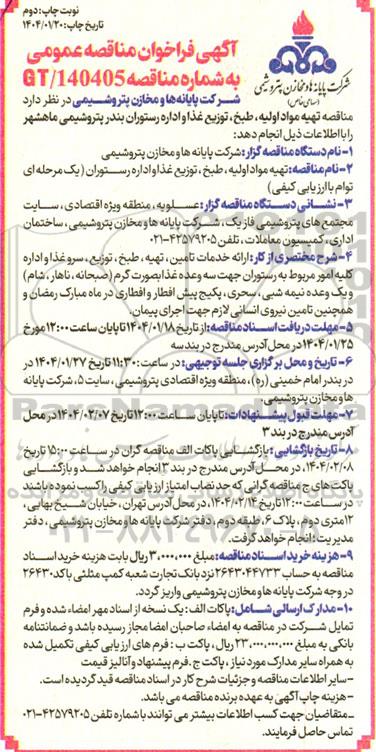 نوبت چاپ: دوم
تاریخ چاپ: ۱۴۰۴/۰۱/۲۰
آگهی فراخوان مناقصه عمومی
به شماره مناقصه GT/140405
شرکت پایانه ها و مخازن پتروشیمی
(سهامی خاص)
شرکت پایانه‌ها و مخازن پتروشیمی در نظر دارد
مناقصه تهیه مواد اولیه، طبخ، توزیع غذا و اداره رستوران بندر پتروشیمی ماهشهر
را با اطلاعات ذیل انجام دهد:
۱- نام دستگاه مناقصه گزار: شرکت پایانه ها و مخازن پتروشیمی
۲- نام مناقصه: تهیه مواد اولیه، طبخ، توزیع غذا و اداره رستوران (یک مرحله ای
توام با ارزیابی کیفی)
۳- نشانی دستگاه مناقصه گزار: عسلویه، منطقه ویژه اقتصادی، سایت
مجتمع های پتروشیمی فاز یک، شرکت پایانه ها و مخازن پتروشیمی، ساختمان
اداری، کمیسیون معاملات، تلفن ۴۲۵۷۹۲۰۵-۰۲۱
۴- شرح مختصری از کار: ارائه خدمات تامین، تهیه، طبخ، توزیع، سرو غذا و اداره
کلیه امور مربوط به رستوران جهت سه وعده غذا بصورت گرم (صبحانه، ناهار، شام)
و یک وعده نیمه شبی، سحری، پکیج پیش افطار و افطاری در ماه مبارک رمضان و
همچنین تامین نیروی انسانی لازم جهت اجرای پیمان.
۵- مهلت دریافت اسناد مناقصه: از تاریخ ۱۴۰۴/۰۱/۱۸ تا پایان ساعت ۱۲:۰۰ مورخ
۱۴۰۴/۰۱/۲۵ در محل آدرس مندرج در بند سه
۶- تاریخ و محل برگزاری جلسه توجیهی: در ساعت: ۱۱:۳۰ تاریخ ۱۴۰۴/۰۱/۲۷ در
در بندر امام خمینی (ره)، منطقه ویژه اقتصادی پتروشیمی، سایت ۵، شرکت پایانه
ها و مخازن پتروشیمی.
۷- مهلت قبول پیشنهادات: تا پایان ساعت ۱۲:۰۰ تاریخ ۱۴۰۴/۰۲/۰۷ در محل
آدرس مندرج در بند ۳
۸- تاریخ بازگشایی: بازگشایی پاکات الف مناقصه گران در ساعت ۱۵:۰۰ تاریخ
۱۴۰۴/۰۲/۰۸ در محل آدرس مندرج در بند ۳ انجام خواهد شد و بازگشایی
پاکت های ج مناقصه گرانی که حد نصاب امتیاز ارزیابی کیفی را کسب نموده باشند
در ساعت ۱۲:۰۰ تاریخ ۱۴۰۴/۰۲/۱۴ در محل آدرس تهران، خیابان شیخ بهایی،
۱۲ متری دوم، پلاک ۶، طبقه دوم، دفتر شرکت پایانه ها و مخازن پتروشیمی، دفتر
مدیریت؛ انجام خواهد گرفت.
۹- هزینه خرید اسناد مناقصه: مبلغ ۳,۰۰۰,۰۰۰ ریال بابت هزینه خرید اسناد
مناقصه به حساب ۲۶۴۳۰۴۴۷۳۳ نزد بانک تجارت شعبه کمپ مثلثی باکد ۲۶۴۳۰
در وجه شرکت پایانه ها و مخازن پتروشیمی واریز گردد.
۱۰- مدارک ارسالی شامل: پاکات الف: یک نسخه از اسناد مهر امضاء شده و فرم
تمایل شرکت در مناقصه به امضاء صاحبان امضا مجاز رسیده باشد و ضمانتنامه
بانکی به مبلغ ۲۳,۰۰۰,۰۰۰,۰۰۰ ریال، پاکت ب: فرم های ارزیابی کیفی تکمیل شده
به همراه سایر مدارک مورد نیاز، پاکت ج. فرم پیشنهاد و آنالیز قیمت
-سایر اطلاعات مناقصه و جزئیات شرح کار در اسناد مناقصه قید گردیده است.
- هزینه چاپ آگهی به عهده برنده مناقصه می باشد.
_ متقاضیان جهت کسب اطلاعات بیشتر می توانند با شماره تلفن ۴۲۵۷۹۲۰۵-۰۲۱
تماس حاصل فرمایند.